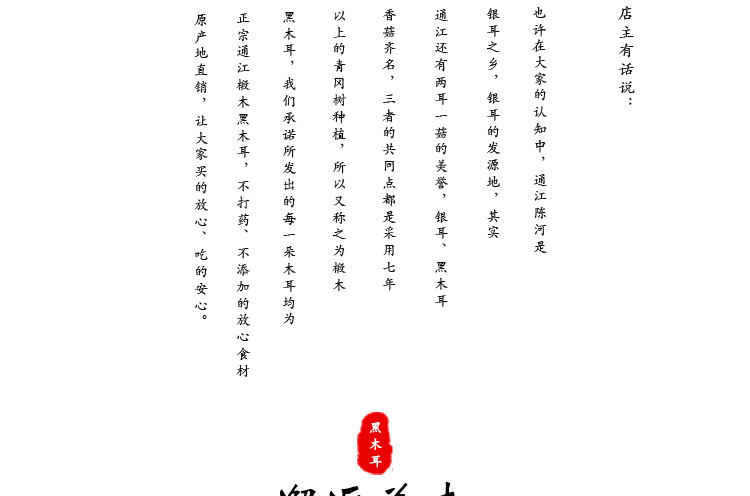 店主有话说：
也许在大家的认知中，通江陈河是
银耳之乡，银耳的发源地，其实
通江还有两耳一菇的美誉，银耳、黑木耳
香菇齐名，三者的共同点都是采用七年
以上的青冈树种植，所以又称之为椴木
黑木耳，我们承诺所发出的每一朵木耳均为
正宗通江椴木黑木耳，不打药、不添加的放心食材
原产地直销，让大家买的放心、吃的安心。
黑木耳